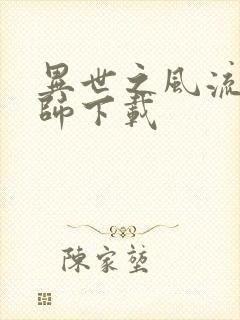 異世之風流
師下載
陳家堃